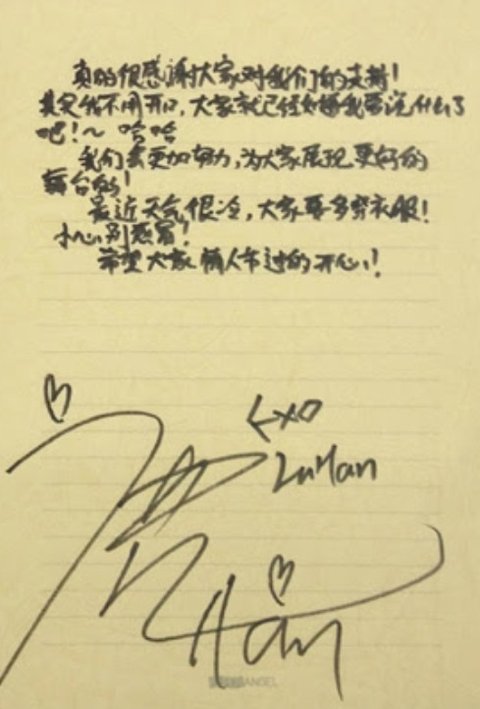 真的很感谢大家对我们的支持！
其实我不用开口，大家就已经知道我要说什么了
吧！~ 哈哈
我们会更加努力，为大家展现更好的
舞台的！
最近天气很冷，大家要多穿衣服！
小心别感冒！
希望大家情人节过的开心！
EXO
LuHan
Han
ANGEL